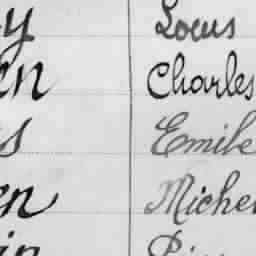 y Louis
en Charles
s Emile
en Michel
in